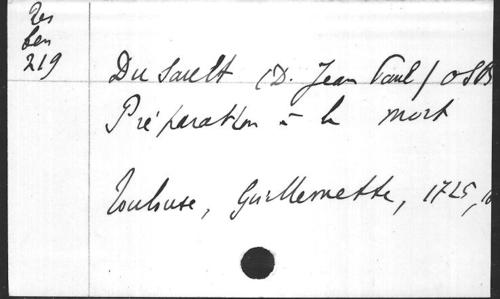 Res
ben
219
Du Sault (D. Jean Paul) OSB
Préparation à la mort
Toulouse, Guillemette, 1725,